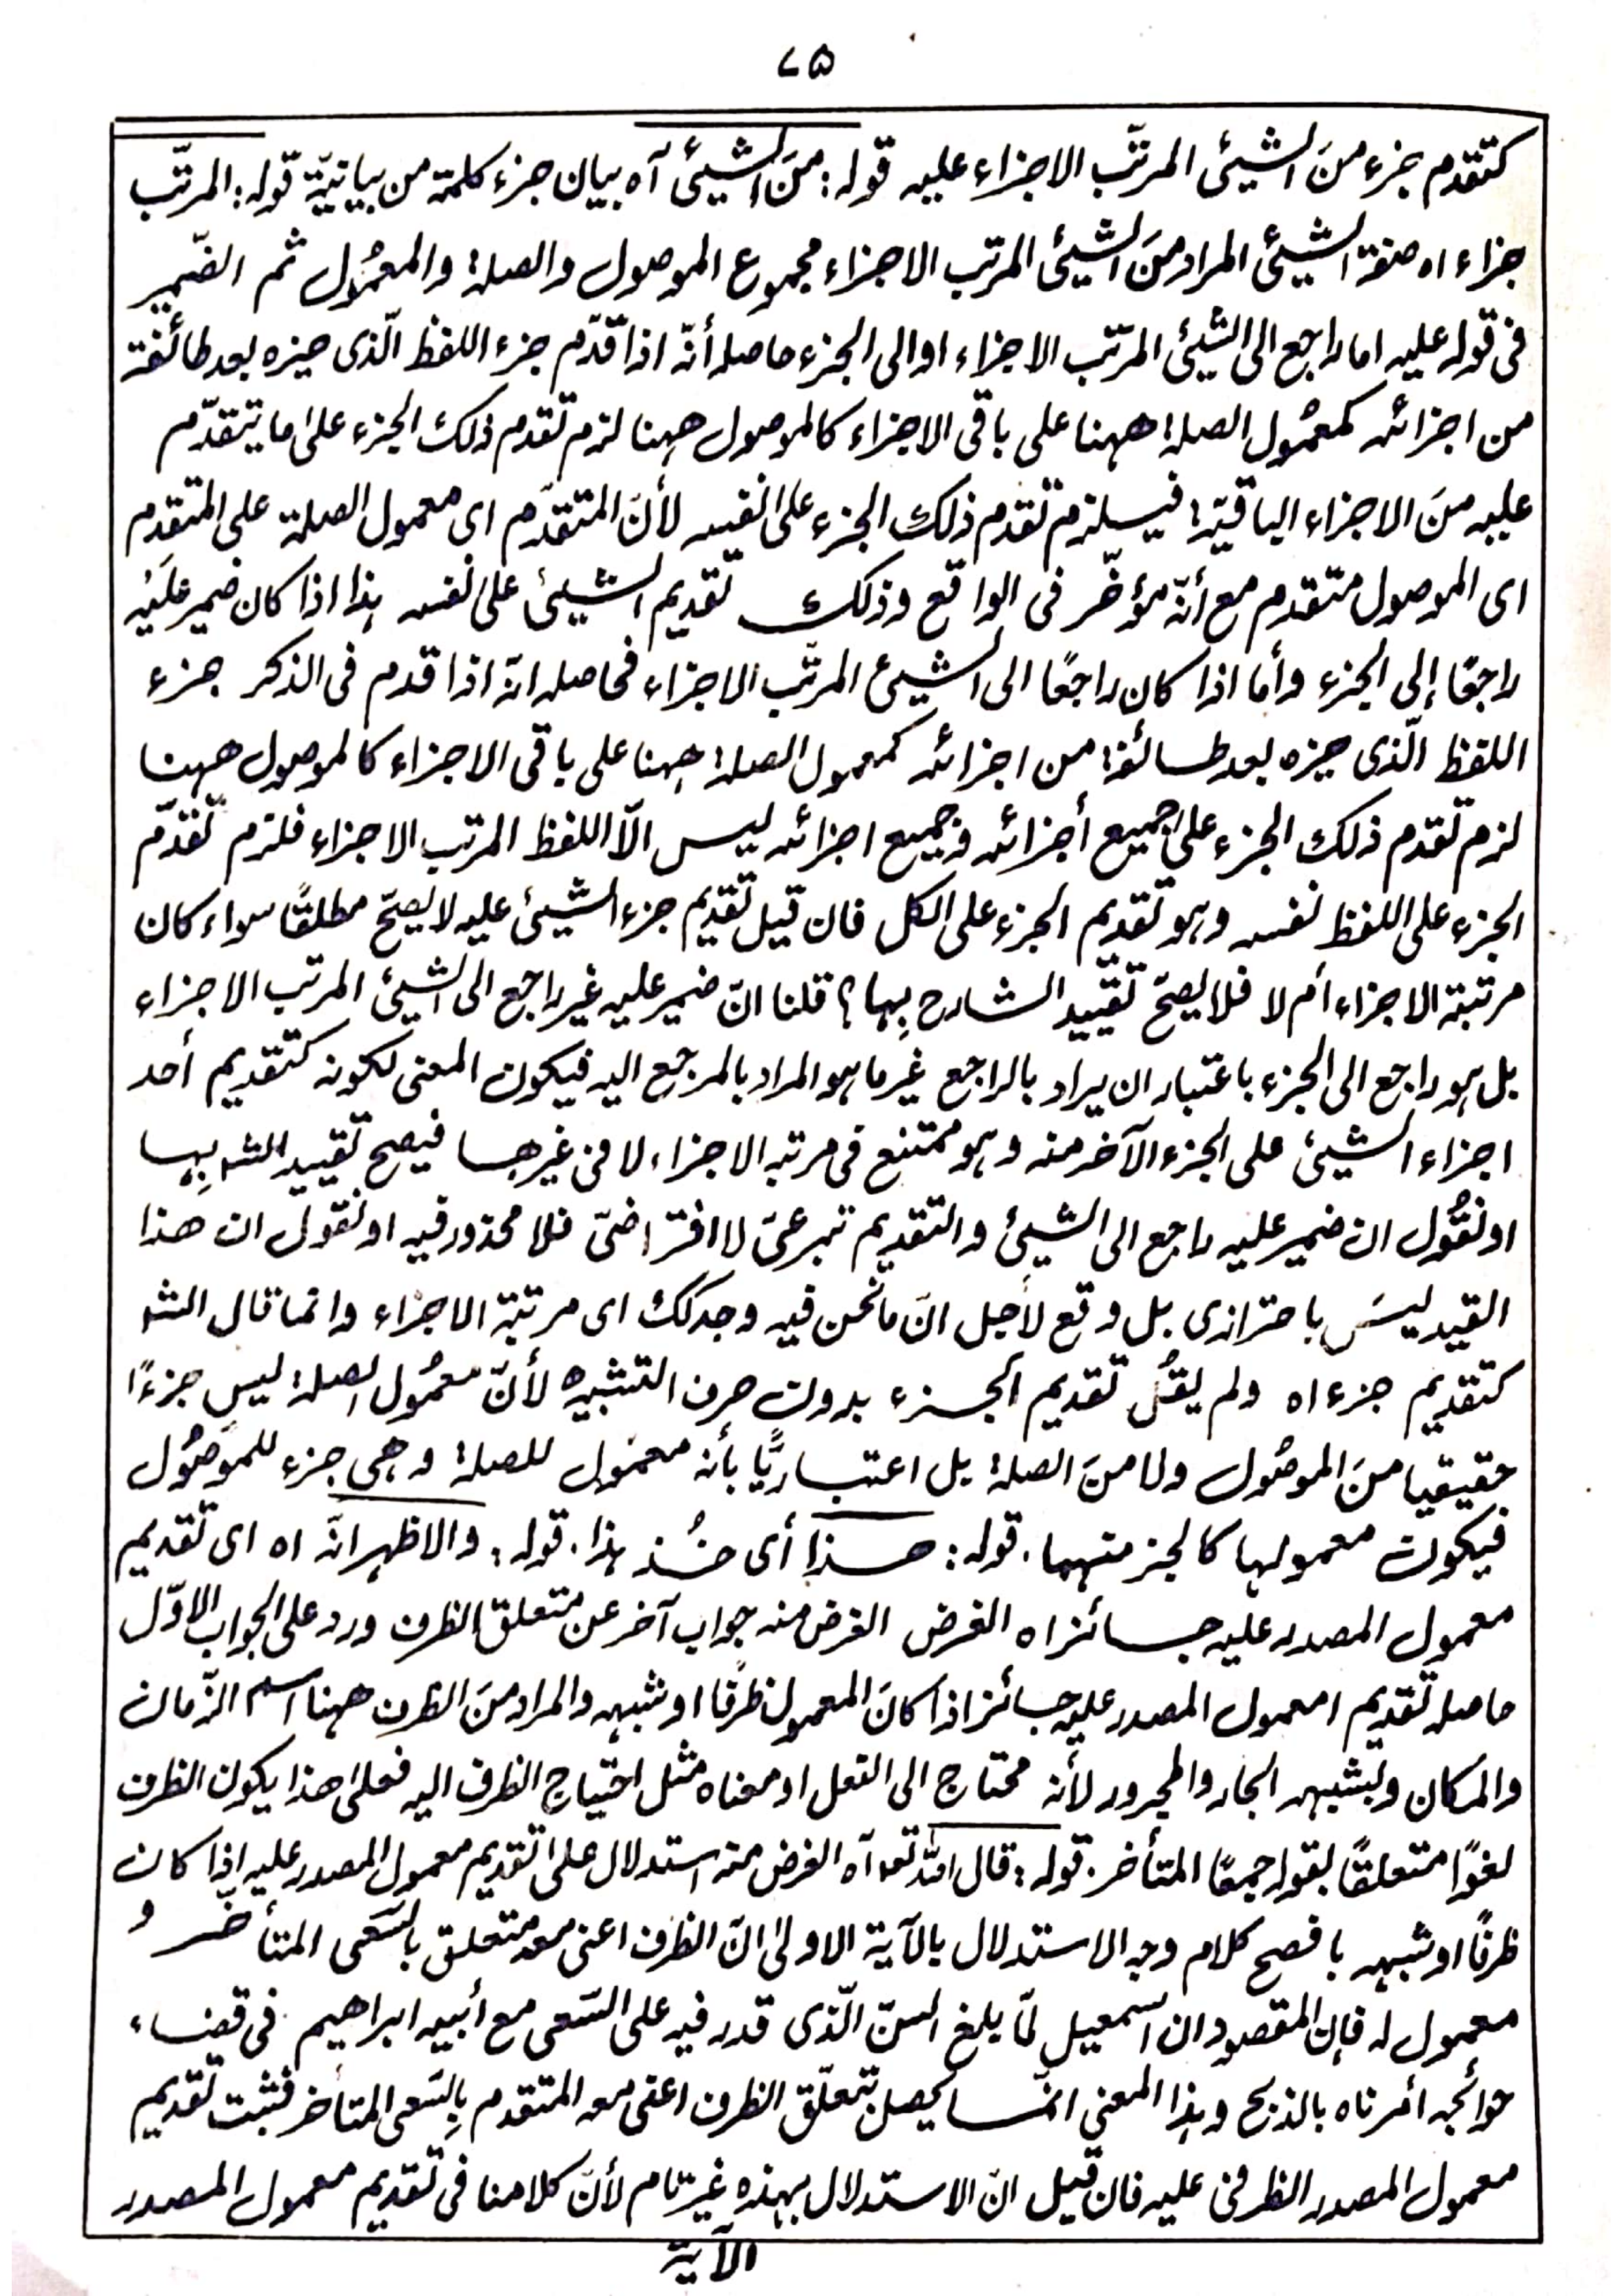 ٧٥
كتقدم جزء منَ الشيئ المرتّب الاجزاء عليه قوله: منَ الشيئ آه بيان جزء كلمة من بيانيّة قوله: المرتّب
جزاء اه صفة الشيئ المراد منَ الشيئ المرتب الاجزاء مجموع الموصول والصلة والمعمُول ثم الضّمير
فى قوله عليه اما راجع الى الشيئ المرتّب الاجزاء او الى الجزء حاصله أنّه اذا قدّم جزء اللفظ الّذى حيزه بعد طائفة
من اجزائه كمعمُول الصلة ههنا على باقى الاجزاء كالموصول ههنا لزم تقدم ذلك الجزء على ما يتقدّم
عليه منَ الاجزاء الباقيّة فيستلزم تقدم ذلك الجزء على نفسه لأنّ المتقدّم اى معمول الصلة على المتقدم
اى الموصول متقدم مع أنّه مؤخّر فى الواقع وذلك تقديم الشيئ على نفسه هذا اذا كان ضمير عليه
راجعًا إلى الجزء وأما اذا كان راجعًا الى الشيئ المرتّب الاجزاء فحاصله انّه اذا قدم فى الذكر جزء
اللفظ الّذى حيزه بعد طائفة من اجزائه كمعمول الصلة ههنا على باقى الاجزاء كالموصول ههنا
لزم تقدم ذلك الجزء على جميع أجزائه وجميع اجزائه ليس الّا اللفظ المرتب الاجزاء فلزم تقدّم
الجزء على اللفظ نفسه وهو تقديم الجزء على الكل فان قيل تقديم جزء الشيئ عليه لا يصحّ مطلقًا سواء كان
مرتبة الاجزاء أم لا فلا يصحّ تقييد الشارح بِها؟ قلنا انّ ضمير عليه غير راجع الى الشيئ المرتب الاجزاء
بل هو راجع الى الجزء باعتبار ان يراد بالراجع غير ما هو المراد بالمرجع اليه فيكون المعنى لكونه كتقديم أحد
اجزاء الشيئ على الجزء الآخر منه وهو ممتنع فى مرتبه الاجزاء لا فى غيرها فيصح تقييد الشه بِها
او نقُول ان ضمير عليه راجع الى الشيئ والتقديم تبرعىّ لا افتراضىّ فلا محذور فيه او نقول ان هذا
القيد ليسَ باحترازى بل وقع لأجل انّ ما نحن فيه وجد كك اى مرتبة الاجزاء وانما قال الشه
كتقديم جزء اه ولم يقُل تقديم الجزء بدون حرف التشبيه لأنّ معمُول الصلة ليس جزءًا
حقيقيا منَ الموصُول ولا منَ الصلة بل اعتباريًّا بأنه معمُول للصلة وهى جزء للموصُول
فيكون معمولها كالجزء منهما. قوله: هذا أى خُذ هذا. قوله: والاظهر انّه اه اى تقديم
معمول المصدر عليه جائز اه الغرض الغرض منه جواب آخر عن متعلق الظرف ورد على الجواب الاوّل
حاصله تقديم امعمول المصدر عليه جائز اذا كانَ المعمول ظرفًا او شبهه والمراد منَ الظرف ههنا اسم الزّمان
والمكان وبشبهه الجار والمجرور لأنه محتاج الى الفعل او معناه مثل احتياج الظرف اليه فعلى هذا يكون الظرف
لغوًا متعلقًا بقوله جمعًا المتأخر. قوله: قال الله تعه آه الغرض منه استدلال على تقديم معمول المصدر عليه اذا كان
ظرفًا او شبهه بافصح كلام وجه الاستدلال بالآية الاولى انّ الظرف اعنى معه متعلق بالسَعى المتأخّر و
معمول له فإن المقصود ان اسمعيل لمّا بلغ السنّ الّذى قدر فيه على السَعى مع أبيه ابراهيم فى قضاء
حوائجه أمرناه بالذبح وهذا المعنى انّما يحصل بتعلّق الظرف اعنى معه المتقدم بِالسَعى المتأخر فثبت تقديم
معمول المصدر الظرفى عليه فان قيل انّ الاستدلال بهذه غير تام لأنّ كلامنا فى تقديم معمول المصدر
الآية